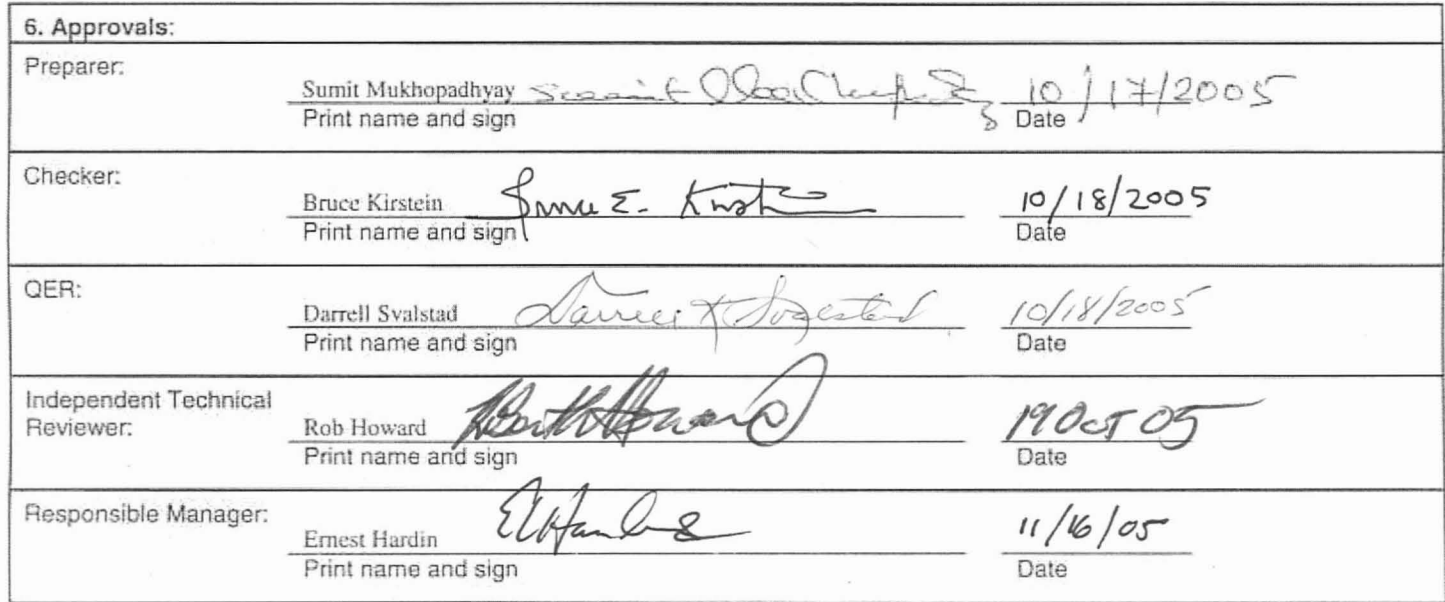 6. Approvals:
Preparer:
Sumit Mukhopadhyay Sumit Mukhopadhyay 10/17/2005
Print name and sign Date
Checker:
Bruce Kirstein Bruce E. Kirstein 10/18/2005
Print name and sign Date
QER:
Darrell Svalstad Darrell K Svalstad 10/18/2005
Print name and sign Date
Independent Technical
Reviewer:
Rob Howard Rob Howard 19 Oct 05
Print name and sign Date
Responsible Manager:
Ernest Hardin 11/16/05
Print name and sign Date